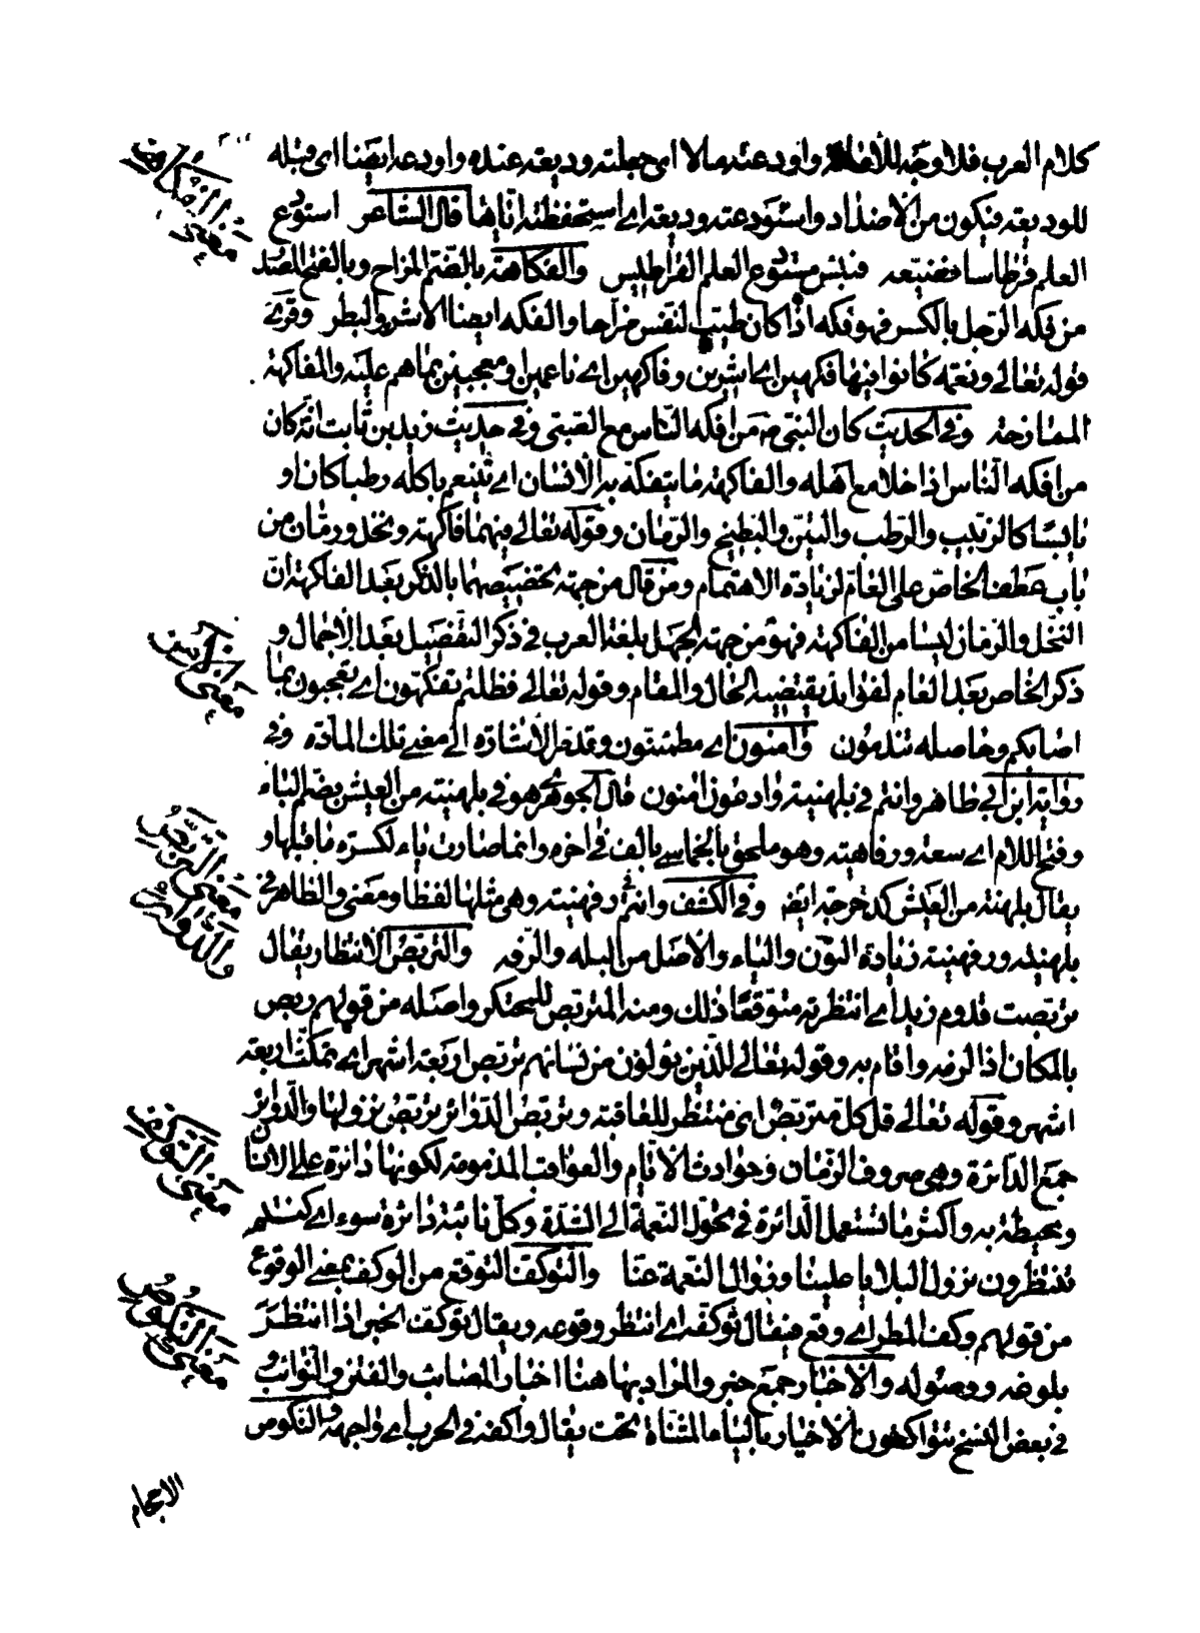 كلام العرب فلا وجه للاعادة واودعته مالا اى جعلته وديعته عنده واودعه ايضا اى قبله
للوديعة فيكون من الاضداد واستودعته وديعة اے استحفظته اياها قال الشاعر استودع
العلم قرطاسا فضيّعه فبئس مستودع العلم القراطيس والفكاهة بالضم المزاح وبالفتح المصد
من فكه الرجل بالكسر فهو فكه اذا كان طيّب النفس مزاحا والفكه ايضا الاشر والبطر وقرئ
قوله تعالى ونعمة كانوا فيها فكهين اے اشرين وفاكهين اے ناعمين او معجبين بما هم عليه والمفاكهة
الممازحة وفي الحديث كان النبي ص من افكه الناس مع الصبي وفي حديث زيد بن ثابت انه كان
من افكه الناس اذا خلا مع اهله والفاكهة ما يتفكه به الانسان اے يتنعم باكله رطبا كان او
يابسًا كالزبيب والرطب والتين والبطيخ والرمان وقوله تعالى فيهما فاكهة ونخل ورمان من
باب عطف الخاص على العام لزيادة الاهتمام ومن قال من جهة تخصيصهما بالذكر بعد الفاكهة ان
النخل والرمان ليسا من الفاكهة فهو من جهة الجهل بلغة العرب في ذكر التفصيل بعد الاجمال و
ذكر الخاص بعد العام لفوايد يقتضيه الحال والمقام وقوله تعالى فظلتم تفكهون اے تعجبون بما
اصابكم وحاصله تندمون وآمنون اے مطمئنون وتقدم الاشارة الى معنى تلك المادة وفي
رواية ابن ابي طاهر وانتم في بلهنية وادعون آمنون قال الجوهرى هو في بلهنية من العيش بضم الباء
وفتح اللام اے سعة ورفاهية وهو ملحق بالخماسى بالف في آخره وانما صارت ياء لكسرة ما قبلها و
يقال بلهنة من العيش كدخرجة ايض وفي الكشف وانتم في رفهنية وهى مثلها لفظا ومعنى والظاهر في
بلهنية ورفهنية زيادة النون والياء والاصل من البله والرفه والتربص الانتظار يقال
تربصت قدوم زيد اے انتظرته متوقعا ذلك ومنه المتربص للمحتكر واصله من قولهم ربص
بالمكان اذا لزمه واقام به وقوله تعالى للذين يولون من نسائهم تربص اربعة اشهر اے تمكث اربعة
اشهر وقوله تعالى قل كل متربص اى منتظر للعاقبة وتربص الدوائر تربص نزولها والدوائر
جمع الدائرة وهى صروف الزمان وحوادث الايام والعواقب المذمومة لكونها دائرة على الانسا
ومحيطة به واكثر ما تستعمل الدائرة في تحول النعمة الى الشدة وكل نائبة دائرة سوء اے كنتم
تنتظرون نزول البلايا علينا وزوال النعمة عنا والتوكف التوقع من الوكف بمعنى الوقوع
من قولهم وكف المطر اے وقع فيقال توكفه اے انتظر وقوعه ويقال توكف الخبر اذا انتظر
بلوغه ووصوله والاخبار جمع خبر والمراد بها هنا اخبار المصائب والفتن والنوائب و
في بعض النسخ تتواكفون الاخيار بالياء المثناة تحت يقال واكفه في الحرب اے واجهه والنكوص
معنى الفكاهة
معنى آمنون
معنى التربص
والدوائر
معنى التوكف
معنى النكوص
الاحجام